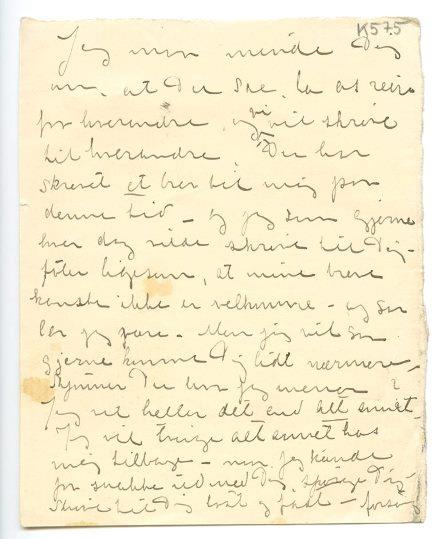 K575
Jeg maa minde Dig
om, at Du sae, la os reise
for hverandre, og vi vil skrive
til hverandre. Du har
skrevet et brev til mig paa
denne tid – og jeg som gjerne
hver dag vilde skrive til Dig –
föler ligesom, at mine breve
kanske ikke er velkomne – og saa
lar jeg være – Men jeg vil saa
gjerne komme Dig lidt nærmere,
skjönner Du hva jeg mener?
Jeg vil heller det end alt annet.
Jeg vil trænge alt annet hos
mig tilbage – naar jeg kunde
faa snakke ud med Dig, spörge Dig –
skrive til Dig löst og fast –